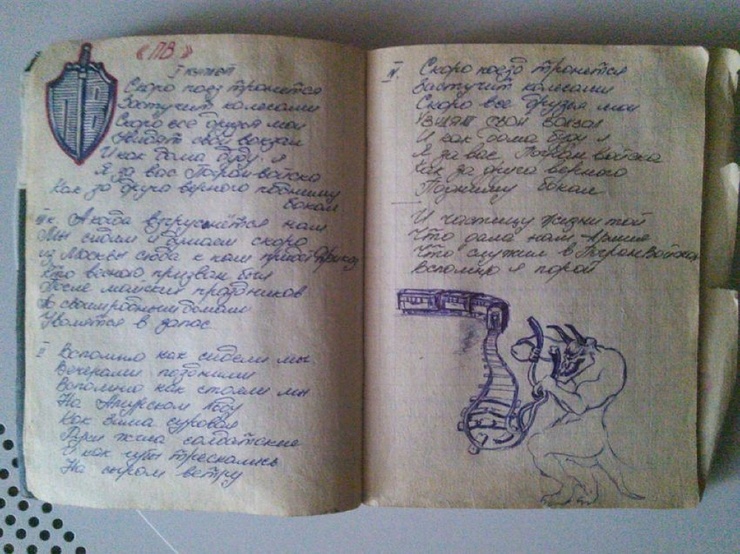 ПВ
"ПВ"
I куплет
Скоро поезд тронется
Застучит колесами
Скоро все друзья мои
Увидят свой вокзал
И как дома буду я
Я за вас Погран-войска
Как за друга верного подниму
бокал
А когда взгрустнётся нам
Мы сидим и думаем скоро
из Москвы сюда к нам придёт приказ
Кто весною призван был
После майских праздников
По своим родным домам
Уволятся в запас
Вспомню как сидели мы
Вечерами поздними
Вспомню как стояли мы
На Амурском льду
Как зима суровая
Жгла солдатские
И как губы трескались
На сыром ветру
IV. Скоро поезд тронется
Застучит колесами
Скоро все друзья мои
свой вокзал
И как дома буду я
Я за вас Погран войска
Как за друга верного
Подниму бокал
И частицу жизни той
Что дала нам Армия
Что служил в Погран Войсках
вспомню я порой